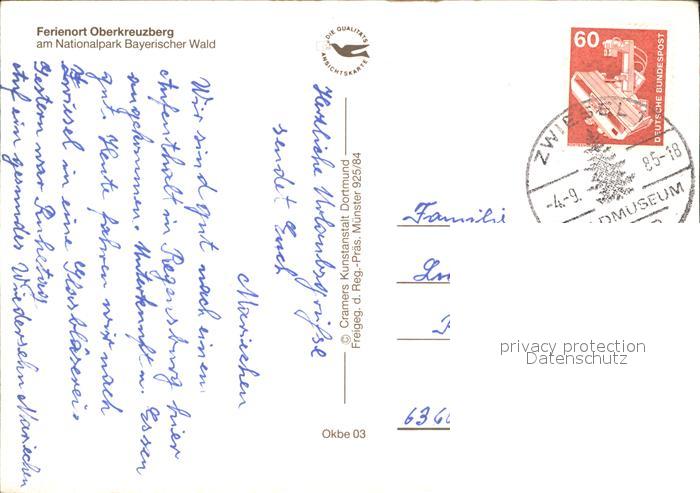 Ferienort Oberkreuzberg
am Nationalpark Bayerischer Wald
DIE QUALITÄTS
ANSICHTSKARTE
60
DEUTSCHE BUNDESPOST
ZWIESEL 1
-4.-9. 85-18
DMUSEUM
Herzliche Urlaubsgrüße
sendet Euch
Mariechen
Wir sind gut nach einen
Aufenthalt in Regensburg hier
angekommen. Unterkunft u. Essen
gut. Heute fahren wir nach
Zwiesel in eine Glasbläserei.
Gestern war Ruhetag
Auf ein gesundes Wiedersehn Mariechen
© Cramers Kunstanstalt Dortmund
Freigeg. d. Reg.-Präs. Münster 925/84
Okbe 03
Familie
636
privacy protection
Datenschutz